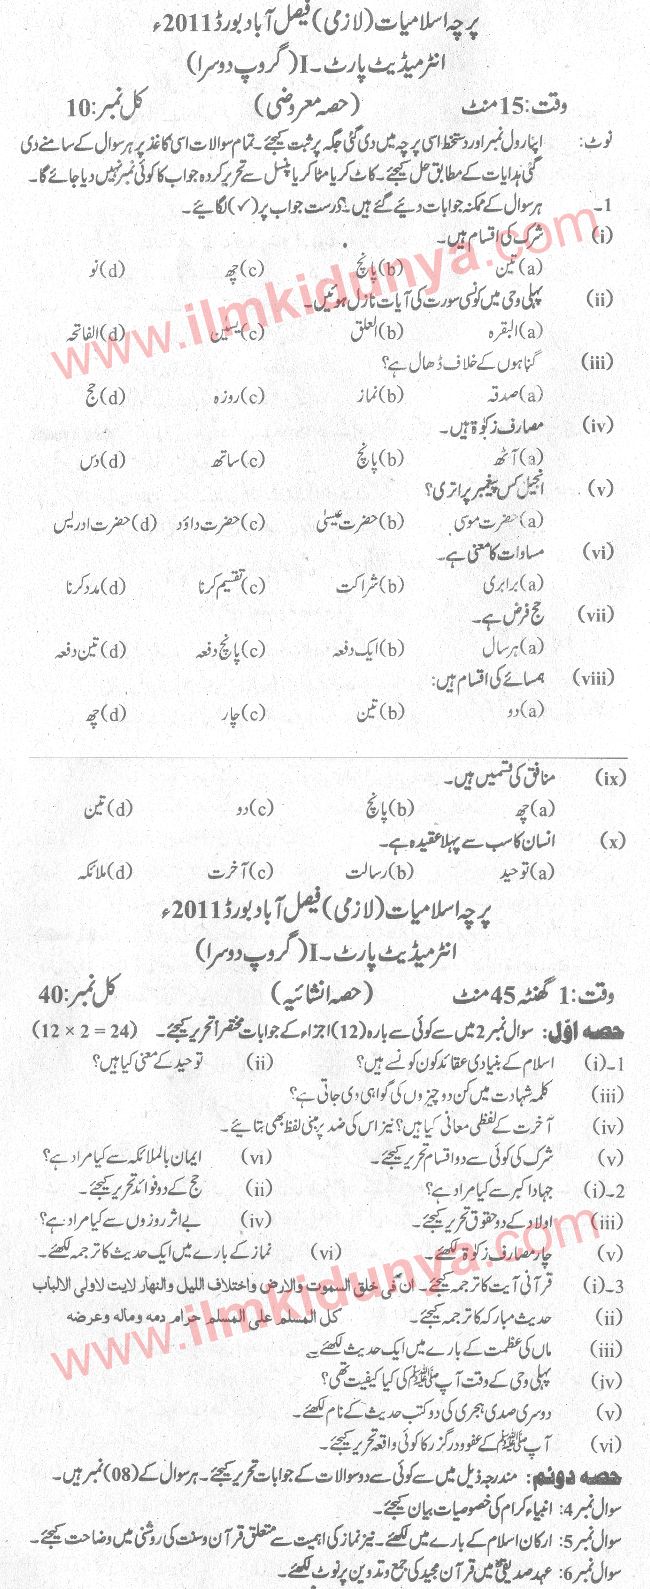 پرچہ اسلامیات (لازمی) فیصل آباد بورڈ 2011ء
انٹرمیڈیٹ پارٹ-I (گروپ دوسرا)
وقت: 15 منٹ (حصہ معروضی) کل نمبر: 10
نوٹ: اپنا رول نمبر اور دستخط اسی پرچہ میں دی گئی جگہ پر ثبت کیجئے۔ تمام سوالات اسی کاغذ پر ہر سوال کے سامنے دی
گئی ہدایات کے مطابق حل کیجئے۔ کاٹ کر یا مٹا کر یا پنسل سے تحریر کردہ جواب کا کوئی نمبر نہیں دیا جائے گا۔
1۔ ہر سوال کے ممکنہ جوابات دیئے گئے ہیں۔ درست جواب پر (✓) لگائیے۔
(i) شرک کی اقسام ہیں۔
(a) تین (b) پانچ (c) چھ (d) نو
(ii) پہلی وحی میں کونسی سورت کی آیات نازل ہوئیں۔
(a) البقرہ (b) العلق (c) یٰسین (d) الفاتحہ
(iii) گناہوں کے خلاف ڈھال ہے؟
(a) صدقہ (b) نماز (c) روزہ (d) حج
(iv) مصارف زکوٰۃ ہیں۔
(a) آٹھ (b) پانچ (c) ساتھ (d) دس
(v) انجیل کس پیغمبر پر اتری؟
(a) حضرت موسی (b) حضرت عیسیٰ (c) حضرت داؤد (d) حضرت ادریس
(vi) مساوات کا معنی ہے۔
(a) برابری (b) شراکت (c) تقسیم کرنا (d) مدد کرنا
(vii) حج فرض ہے۔
(a) ہر سال (b) ایک دفعہ (c) پانچ دفعہ (d) تین دفعہ
(viii) ہمسائے کی اقسام ہیں:
(a) دو (b) تین (c) چار (d) چھ
(ix) منافق کی قسمیں ہیں۔
(a) چھ (b) پانچ (c) دو (d) تین
(x) انسان کا سب سے پہلا عقیدہ ہے۔
(a) توحید (b) رسالت (c) آخرت (d) ملائکہ
پرچہ اسلامیات (لازمی) فیصل آباد بورڈ 2011ء
انٹرمیڈیٹ پارٹ-I (گروپ دوسرا)
وقت: 1 گھنٹہ 45 منٹ (حصہ انشائیہ) کل نمبر: 40
حصہ اوّل: سوال نمبر 2 میں سے کوئی سے بارہ (12) اجزاء کے جوابات مختصراً تحریر کیجئے۔ (12 × 2 = 24)
1۔(i) اسلام کے بنیادی عقائد کون کونسے ہیں؟ (ii) توحید کے معنی کیا ہیں؟
(iii) کلمہ شہادت میں کن دو چیزوں کی گواہی دی جاتی ہے؟
(iv) آخرت کے لفظی معانی کیا ہیں؟ نیز اس کی ضد پر مبنی لفظ بھی بتائیے۔
(v) شرک کی کوئی سے دو اقسام تحریر کیجئے۔ (vi) ایمان بالملائکہ سے کیا مراد ہے؟
2۔(i) جہاد اکبر سے کیا مراد ہے؟ (ii) حج کے دو فوائد تحریر کیجئے۔
(iii) اولاد کے دو حقوق تحریر کیجئے۔ (iv) بے اثر روزوں سے کیا مراد ہے؟
(v) چار مصارف زکوٰۃ لکھئے۔ (vi) نماز کے بارے میں ایک حدیث کا ترجمہ لکھئے۔
3۔(i) قرآنی آیت کا ترجمہ کیجئے۔ ان فی خلق السموت والارض واختلاف الليل والنهار لايت لاولى الالباب
(ii) حدیث مبارکہ کا ترجمہ کیجئے۔ كل المسلم على المسلم حرام دمه وماله وعرضه
(iii) ماں کی عظمت کے بارے میں ایک حدیث لکھئے۔
(iv) پہلی وحی کے وقت آپ ﷺ کی کیا کیفیت تھی؟
(v) دوسری صدی ہجری کی دو کتب حدیث کے نام لکھئے۔
(vi) آپ ﷺ کے عفو و درگزر کا کوئی واقعہ تحریر کیجئے۔
حصہ دوئم: مندرجہ ذیل میں سے کوئی سے دو سوالات کے جوابات تحریر کیجئے۔ ہر سوال کے (08) نمبر ہیں۔
سوال نمبر 4: انبیاء کرام کی خصوصیات بیان کیجئے۔
سوال نمبر 5: ارکان اسلام کے بارے میں لکھئے۔ نیز نماز کی اہمیت سے متعلق قرآن و سنت کی روشنی میں وضاحت کیجئے۔
سوال نمبر 6: عہد صدیقی میں قرآن مجید کی جمع و تدوین پر نوٹ لکھئے۔
www.ilmkidunya.com
www.ilmkidunya.com